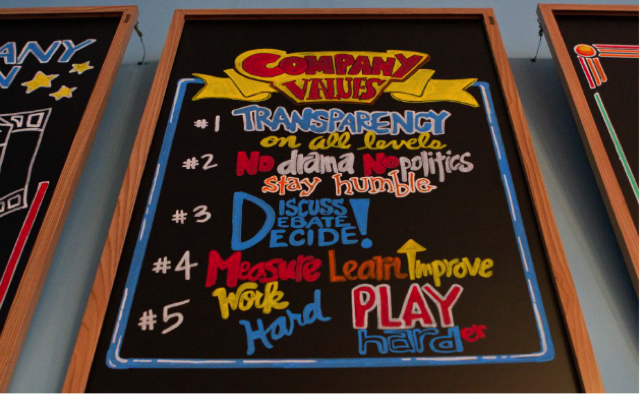 ANY
N
COMPANY
VALUES
#1 TRANSPARENCY
on all levels
#2 No drama No politics
stay humble
#3 DISCUSS
DEBATE
DECIDE!
#4 Measure Learn Improve
#5 Work Hard PLAY harder